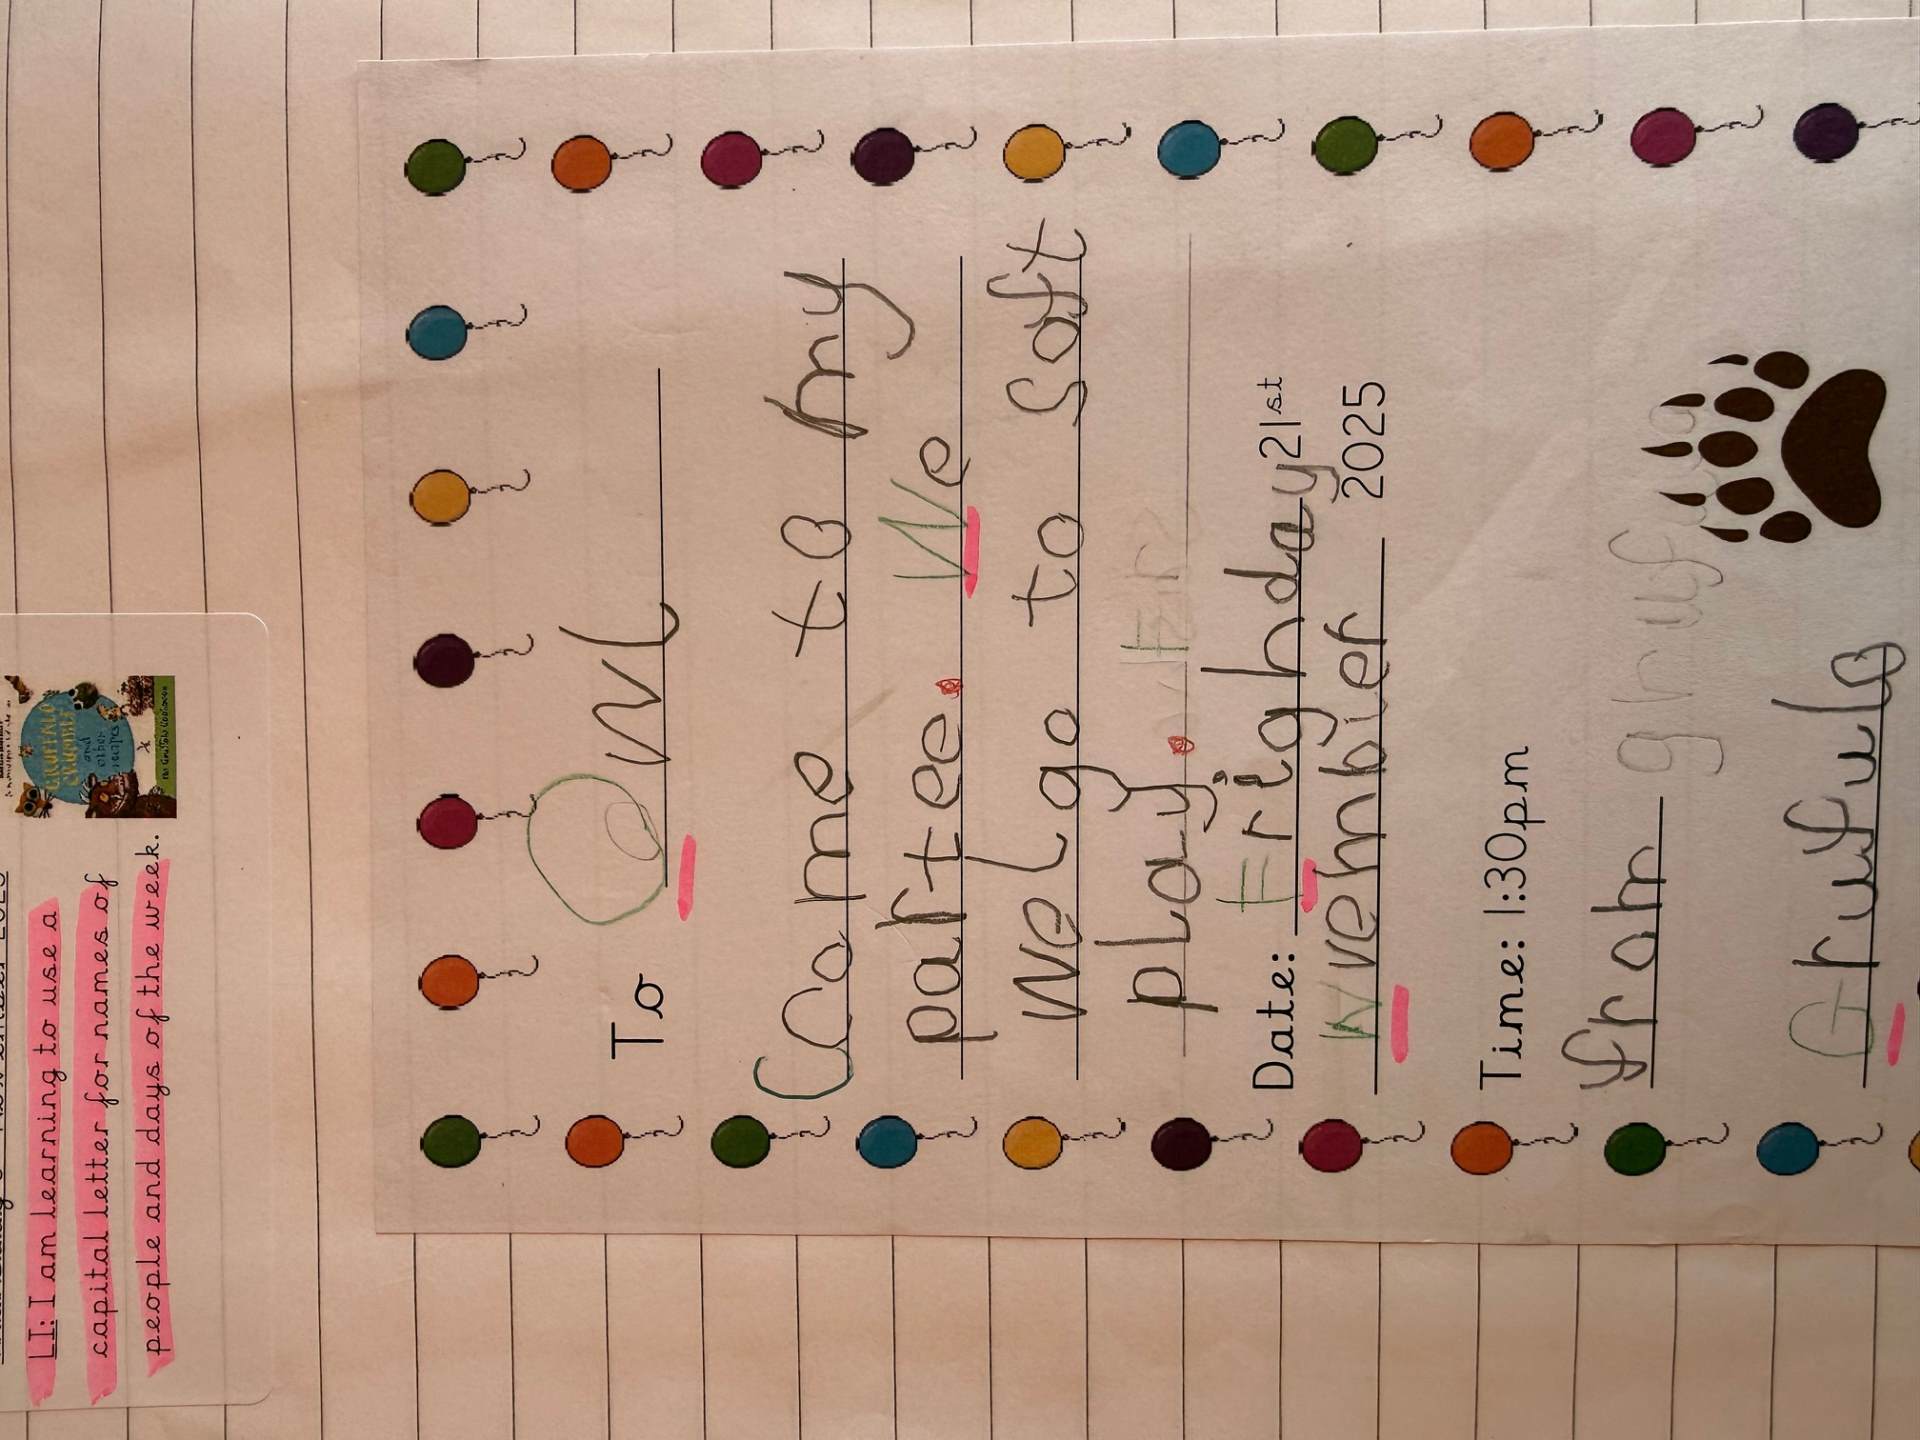 LI: I am learning to use a
capital letter for names of
people and days of the week.
GRUFFALO
CRUMBLE
and
other
recipes
To Owl
Come to my
partee. We
We go to Soft
play.
Date: Frighday 21st
Nvembier 2025
Time: 1:30pm
from
Grufulo